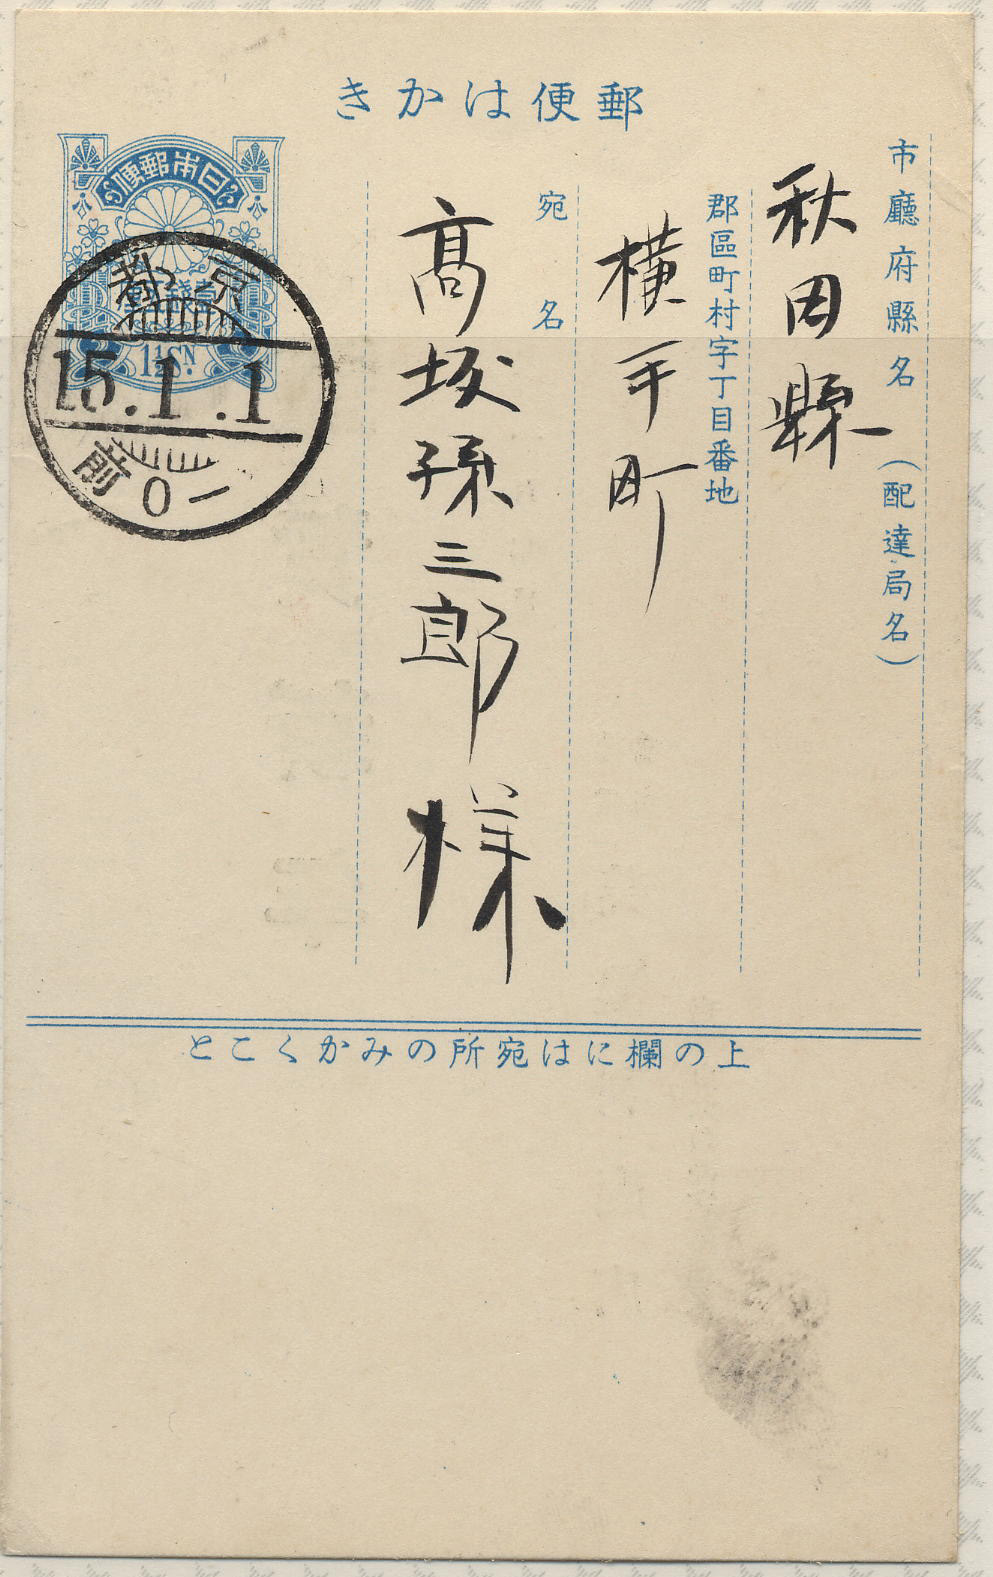 郵便はかき
市廳府縣名(配達局名)
秋田縣
郡區町村字丁目番地
横手町
宛名
高坂孫三郎様
日本郵便
1½SN.
京都
15.1.1
前0-
上の欄には宛所のみかくこと